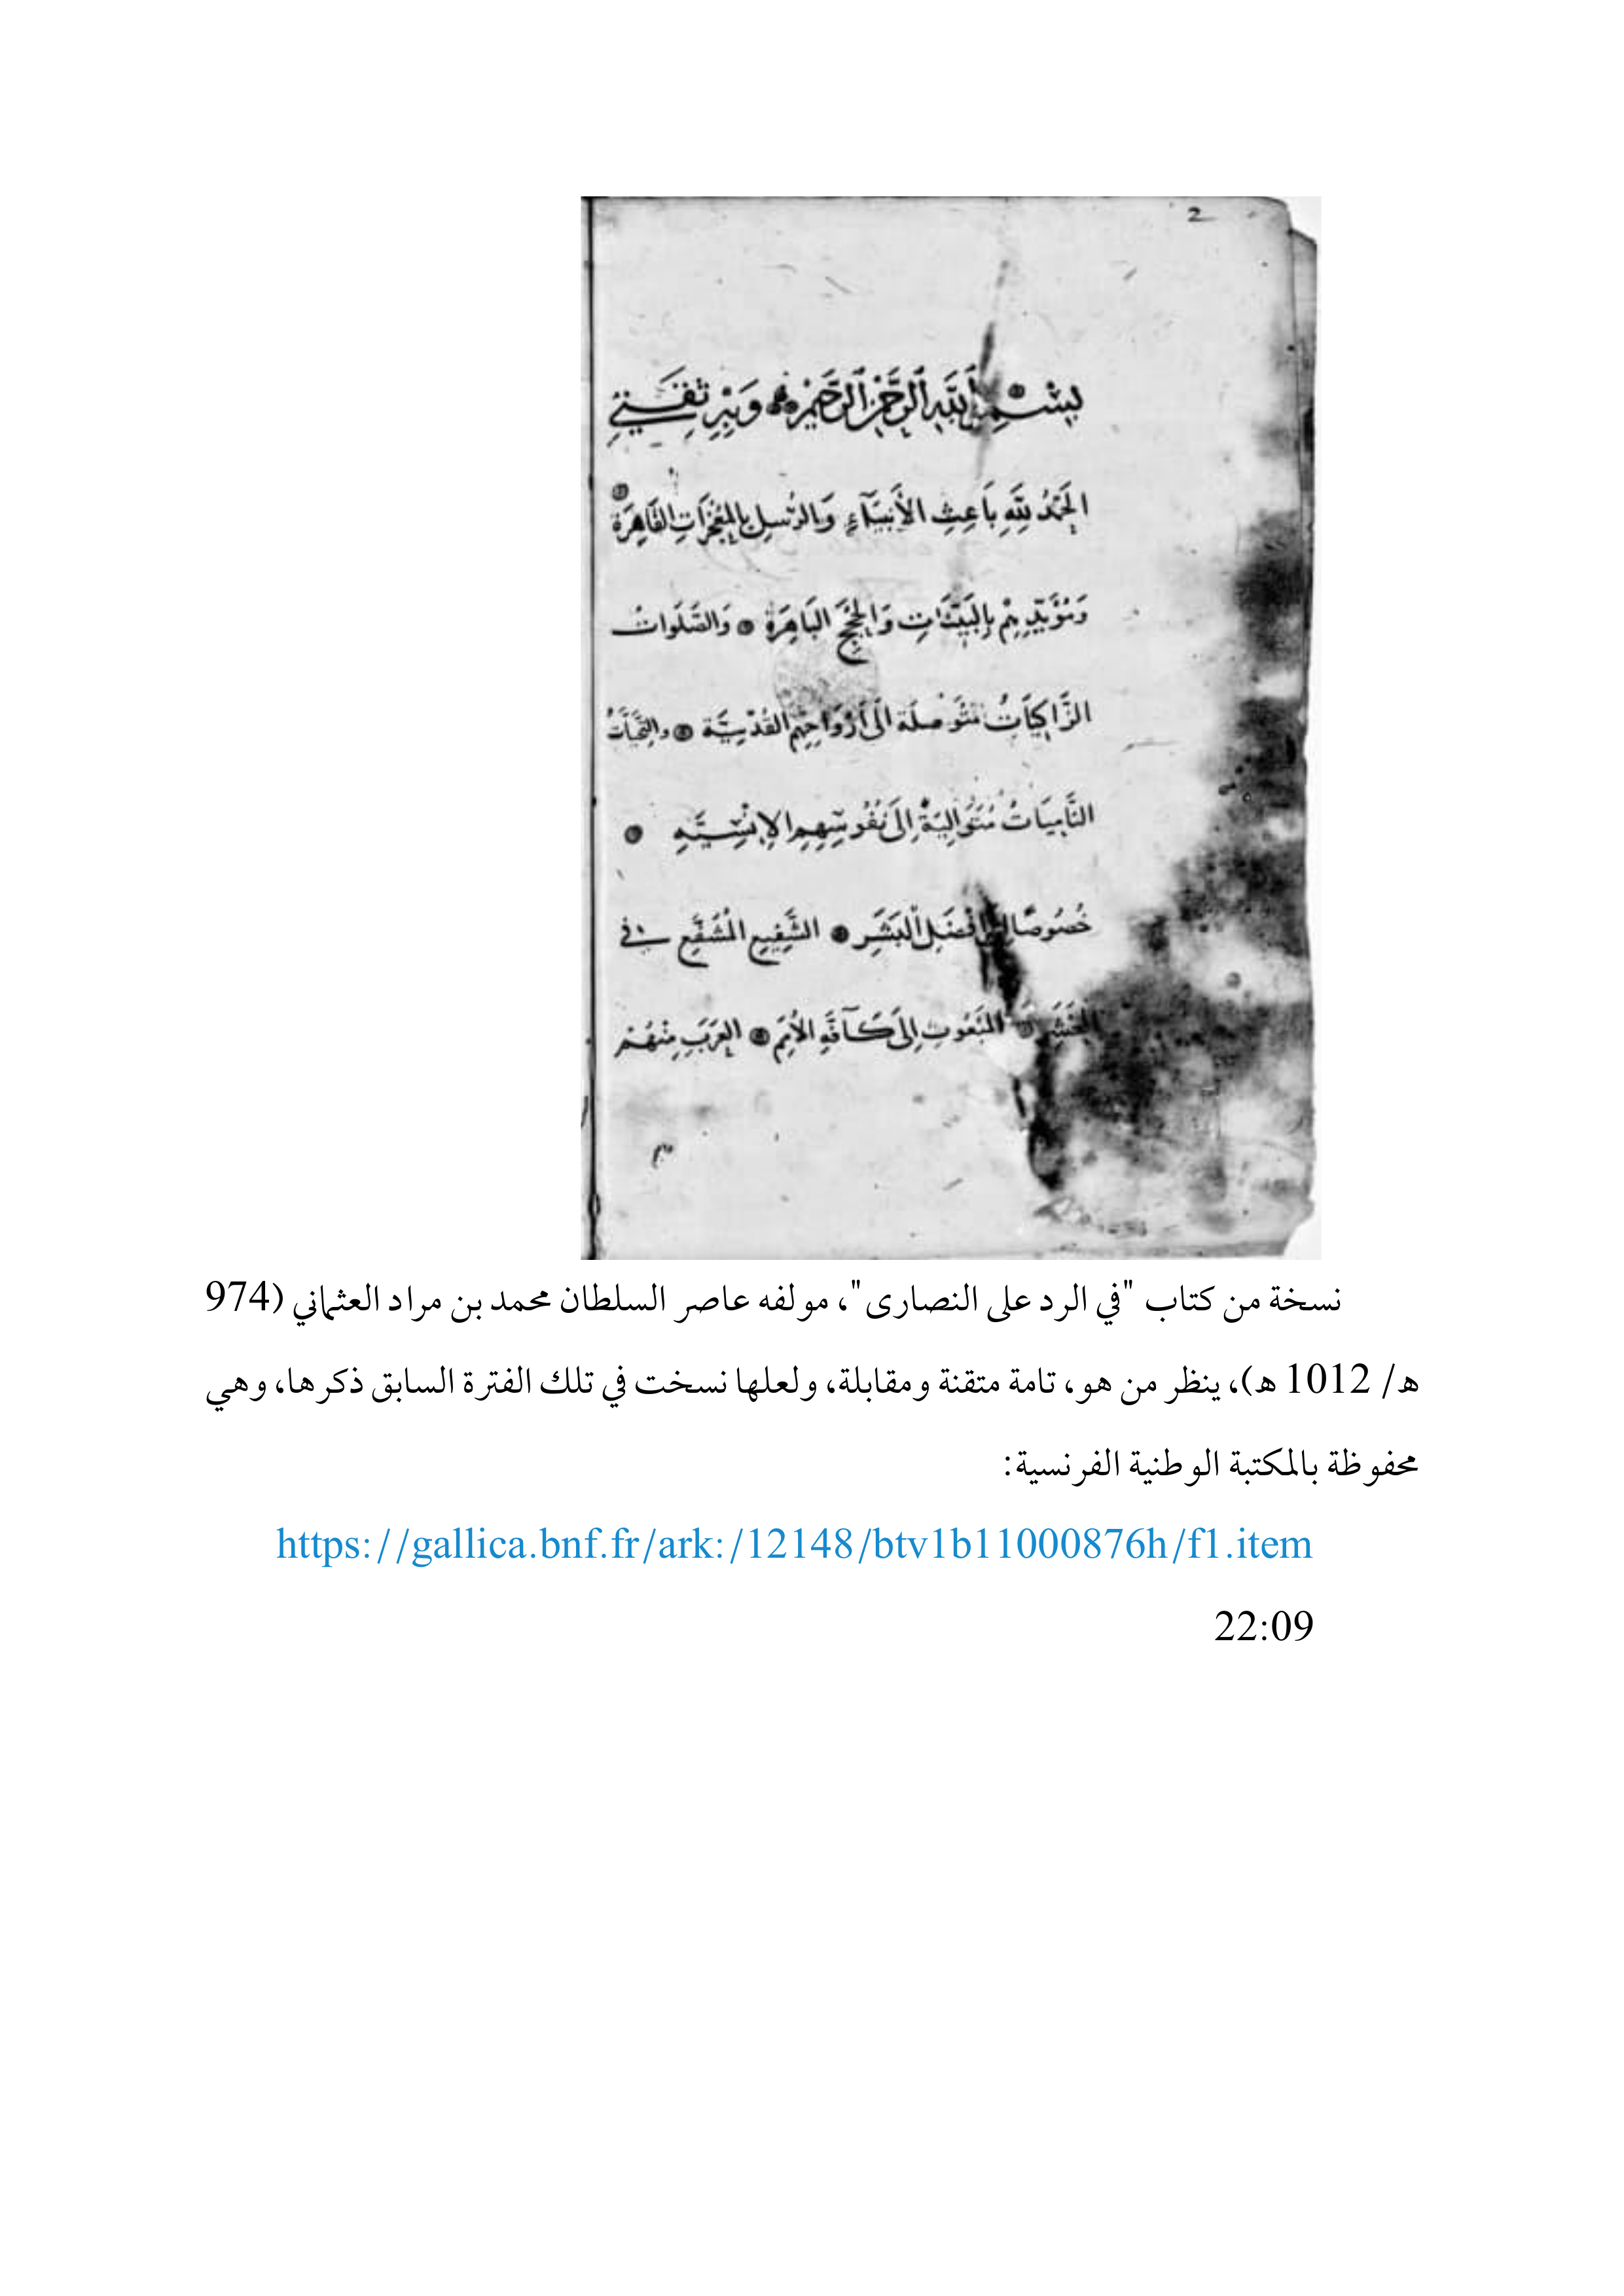 2
بِسْمِ ٱللَّهِ ٱلرَّحْمٰنِ ٱلرَّحِيْمِ وَبِهِ ثِقَتِي
الحَمْدُ لِلَّهِ بَاعِثِ الأَنْبِيَآءِ وَالرُّسِلِ بِالمُعْجِزَاتِ القَاهِرَة
وَمُؤَيِّدِهِمْ بِالبَيِّنَاتِ وَالحُجَجِ البَاهِرَةِ وَالصَّلَوَاتُ
الزَّاكِيَاتُ مُتَوَصِلَة الَى أَرْوَاحِهِم القُدْسِيَّة والتَّحِيَّاتُ
النَّامِيَاتُ مُتَوَالِيَةٌ اِلَى نُفُوسِهِمِ الاِنْسِيَّهِ
خُصُوصًا افْضَلِ الْبَشَرِ الشَّفِيعِ الْمُشَفَّعِ فِي
المَحْشَرِ المَبْعُوثِ اِلَى كَآفَّةِ الأُمَمِ العَرَبِ مِنْهُمْ
نسخة من كتاب "في الرد على النصارى"، مولفه عاصر السلطان محمد بن مراد العثماني (974
ه/ 1012 ه)، ينظر من هو، تامة متقنة ومقابلة، ولعلها نسخت في تلك الفترة السابق ذكرها، وهي
محفوظة بالمكتبة الوطنية الفرنسية:
https://gallica.bnf.fr/ark:/12148/btv1b11000876h/f1.item
22:09